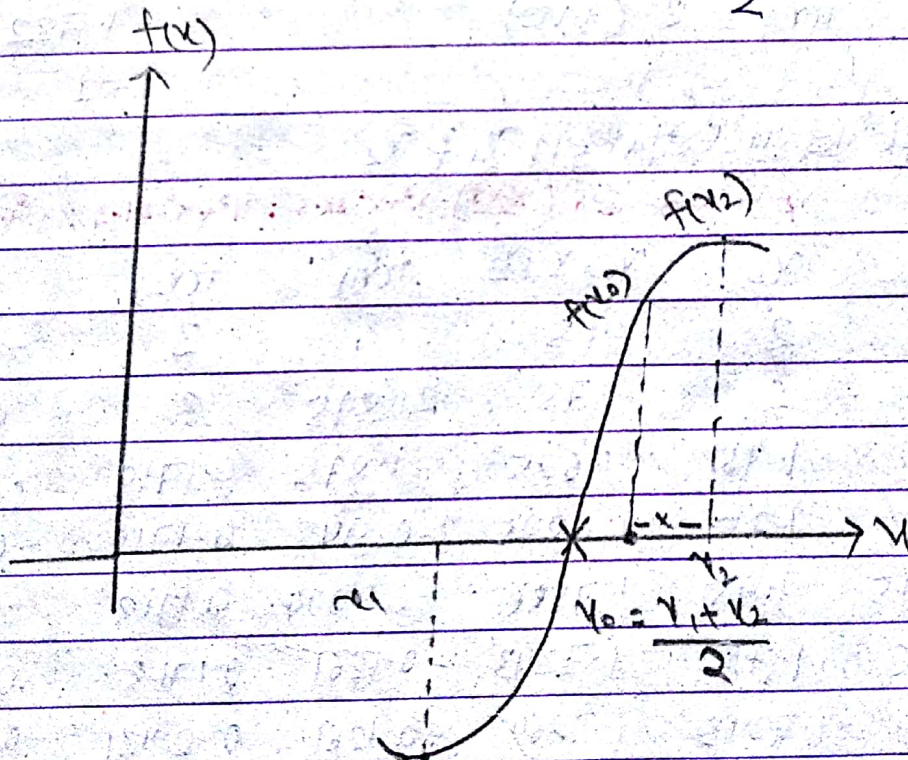 2
f(x)
f(x₂)
f(x₀)
x
x
x₂
x₁
x₀ = x₁ + x₂
2